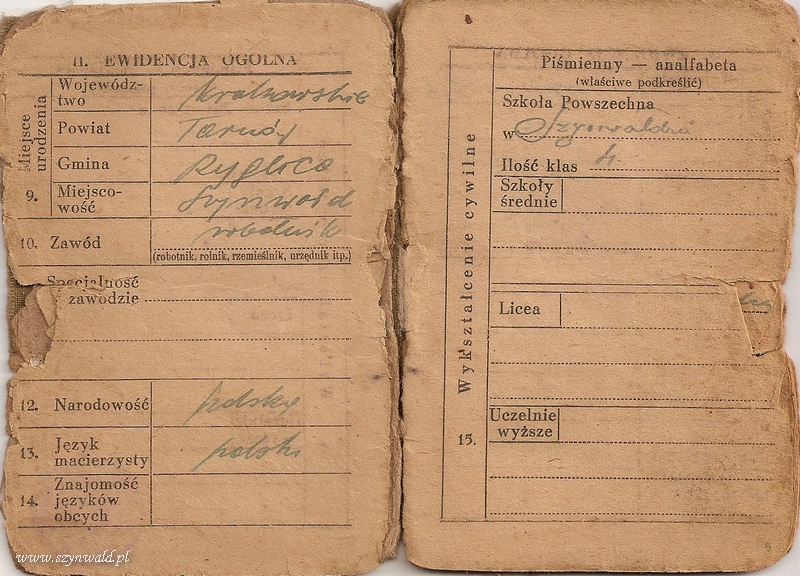 II. EWIDENCJA OGÓLNA
Miejsce urodzenia
9.
Wojewódz-
two
Krakowskie
Powiat Tarnów
Gmina Ryglice
Miejsco-
wość Szynwałd
10. Zawód robotnik
(robotnik, rolnik, rzemieślnik, urzędnik itp.)
Specjalność
w zawodzie
12. Narodowość polska
13. Język
macierzysty polski
14. Znajomość
języków
obcych
www.szynwald.pl
15. Wykształcenie cywilne
Piśmienny — analfabeta
(właściwe podkreślić)
Szkoła Powszechna
w Szynwałdzie
Ilość klas 4
Szkoły
średnie
Licea
Uczelnie
wyższe